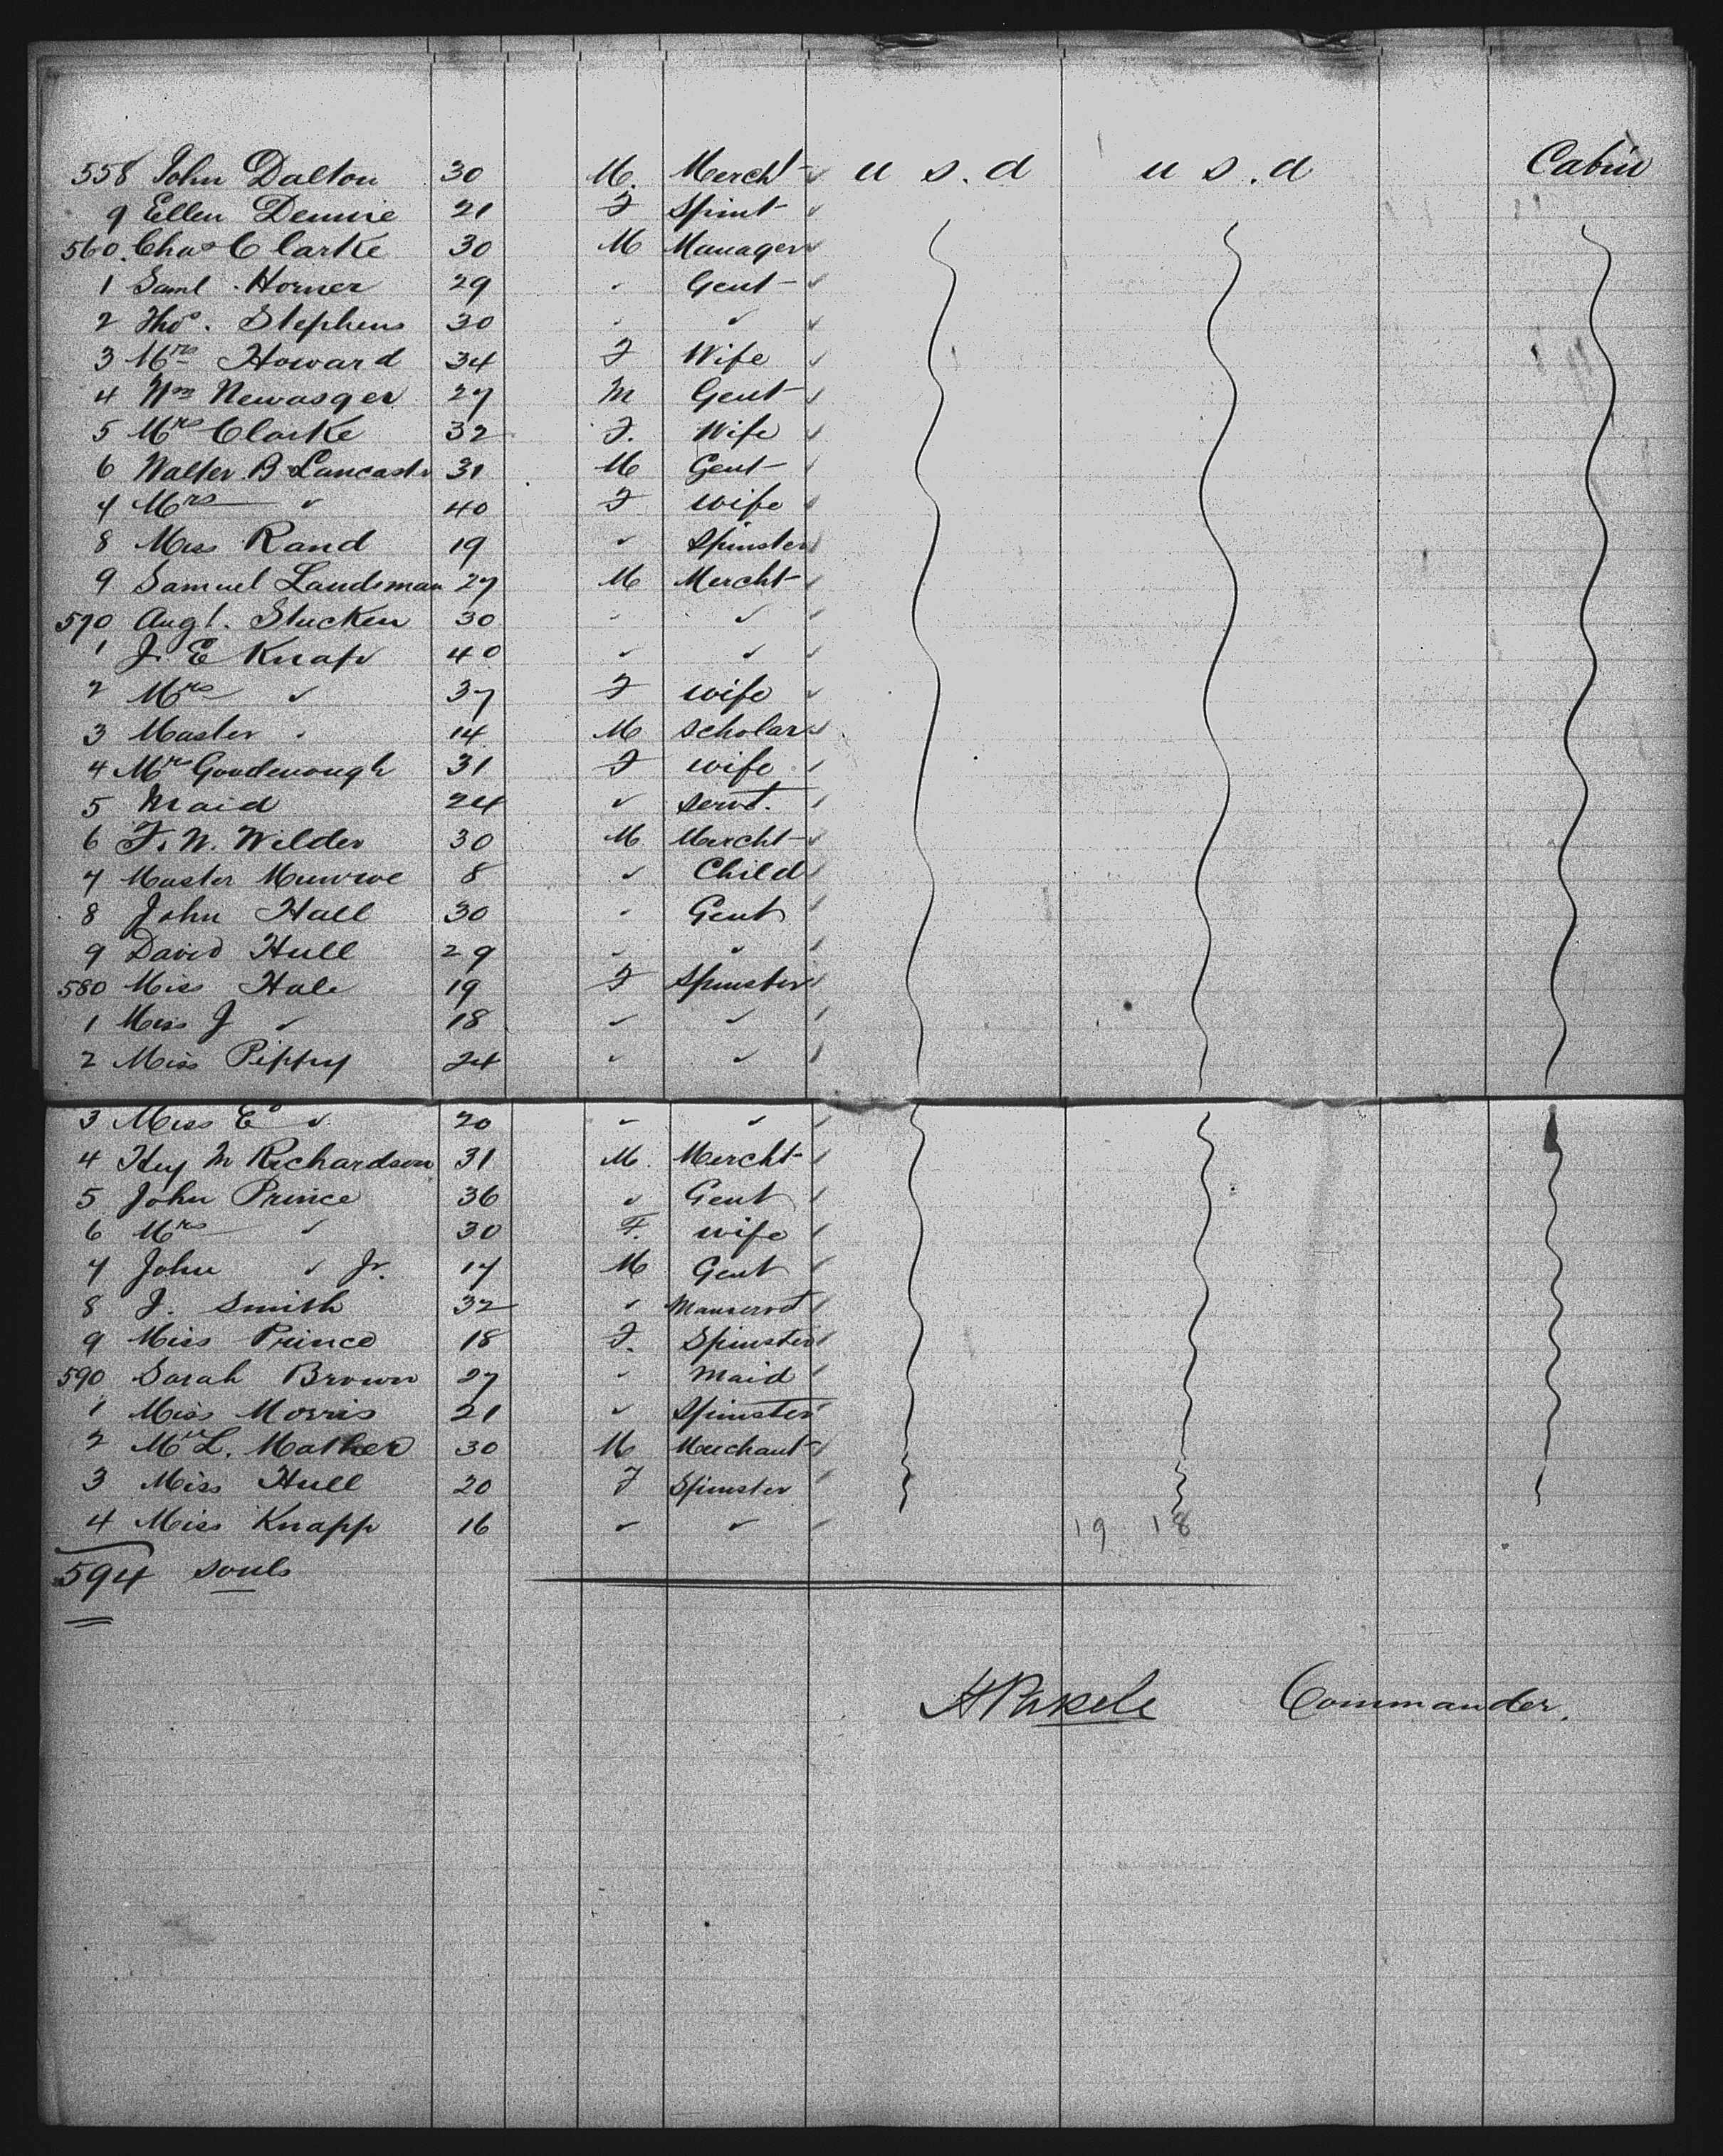 558 John Dalton 30 M. Mercht u s. d u s. d Cabin
9 Ellen Dennie 21 F Spinst
560. Chas Clarke 30 M Manager
1 Saml Horner 29 " Gent
2 Thos. Stephens 30 " "
3 Mrs Howard 34 F Wife
4 Wm Newasger 27 M Gent
5 Mrs Clarke 32 F. Wife
6 Walter B Lancastr 31 M Gent
7 Mrs " 40 F wife
8 Miss Rand 19 " Spinster
9 Samuel Landsman 27 M Mercht
570 Augt. Stucken 30 " "
1 J. E Knapp 40 " "
2 Mrs " 37 F wife
3 Master " 14 M scholar
4 Mrs Goodenough 31 F wife
5 Maid 24 " servt.
6 F. W. Wilder 30 M Mercht
7 Master Munroe 8 " Child
8 John Hall 30 " Gent
9 David Hull 29 " "
580 Miss Hale 19 F Spinster
1 Miss J " 18 " "
2 Miss Pippy 24 " "
3 Miss E " 20 " "
4 Hy M Richardson 31 M. Mercht
5 John Prince 36 " Gent
6 Mrs " 30 F. wife
7 John " Jr. 17 M Gent
8 J. Smith 32 " Manservt
9 Miss Prince 18 F. Spinster
590 Sarah Brown 27 " Maid
1 Miss Morris 21 " Spinster
2 Mr L. Mather 30 M Merchant
3 Miss Hull 20 F Spinster
4 Miss Knapp 16 " " 19 18
594 souls
Commander.